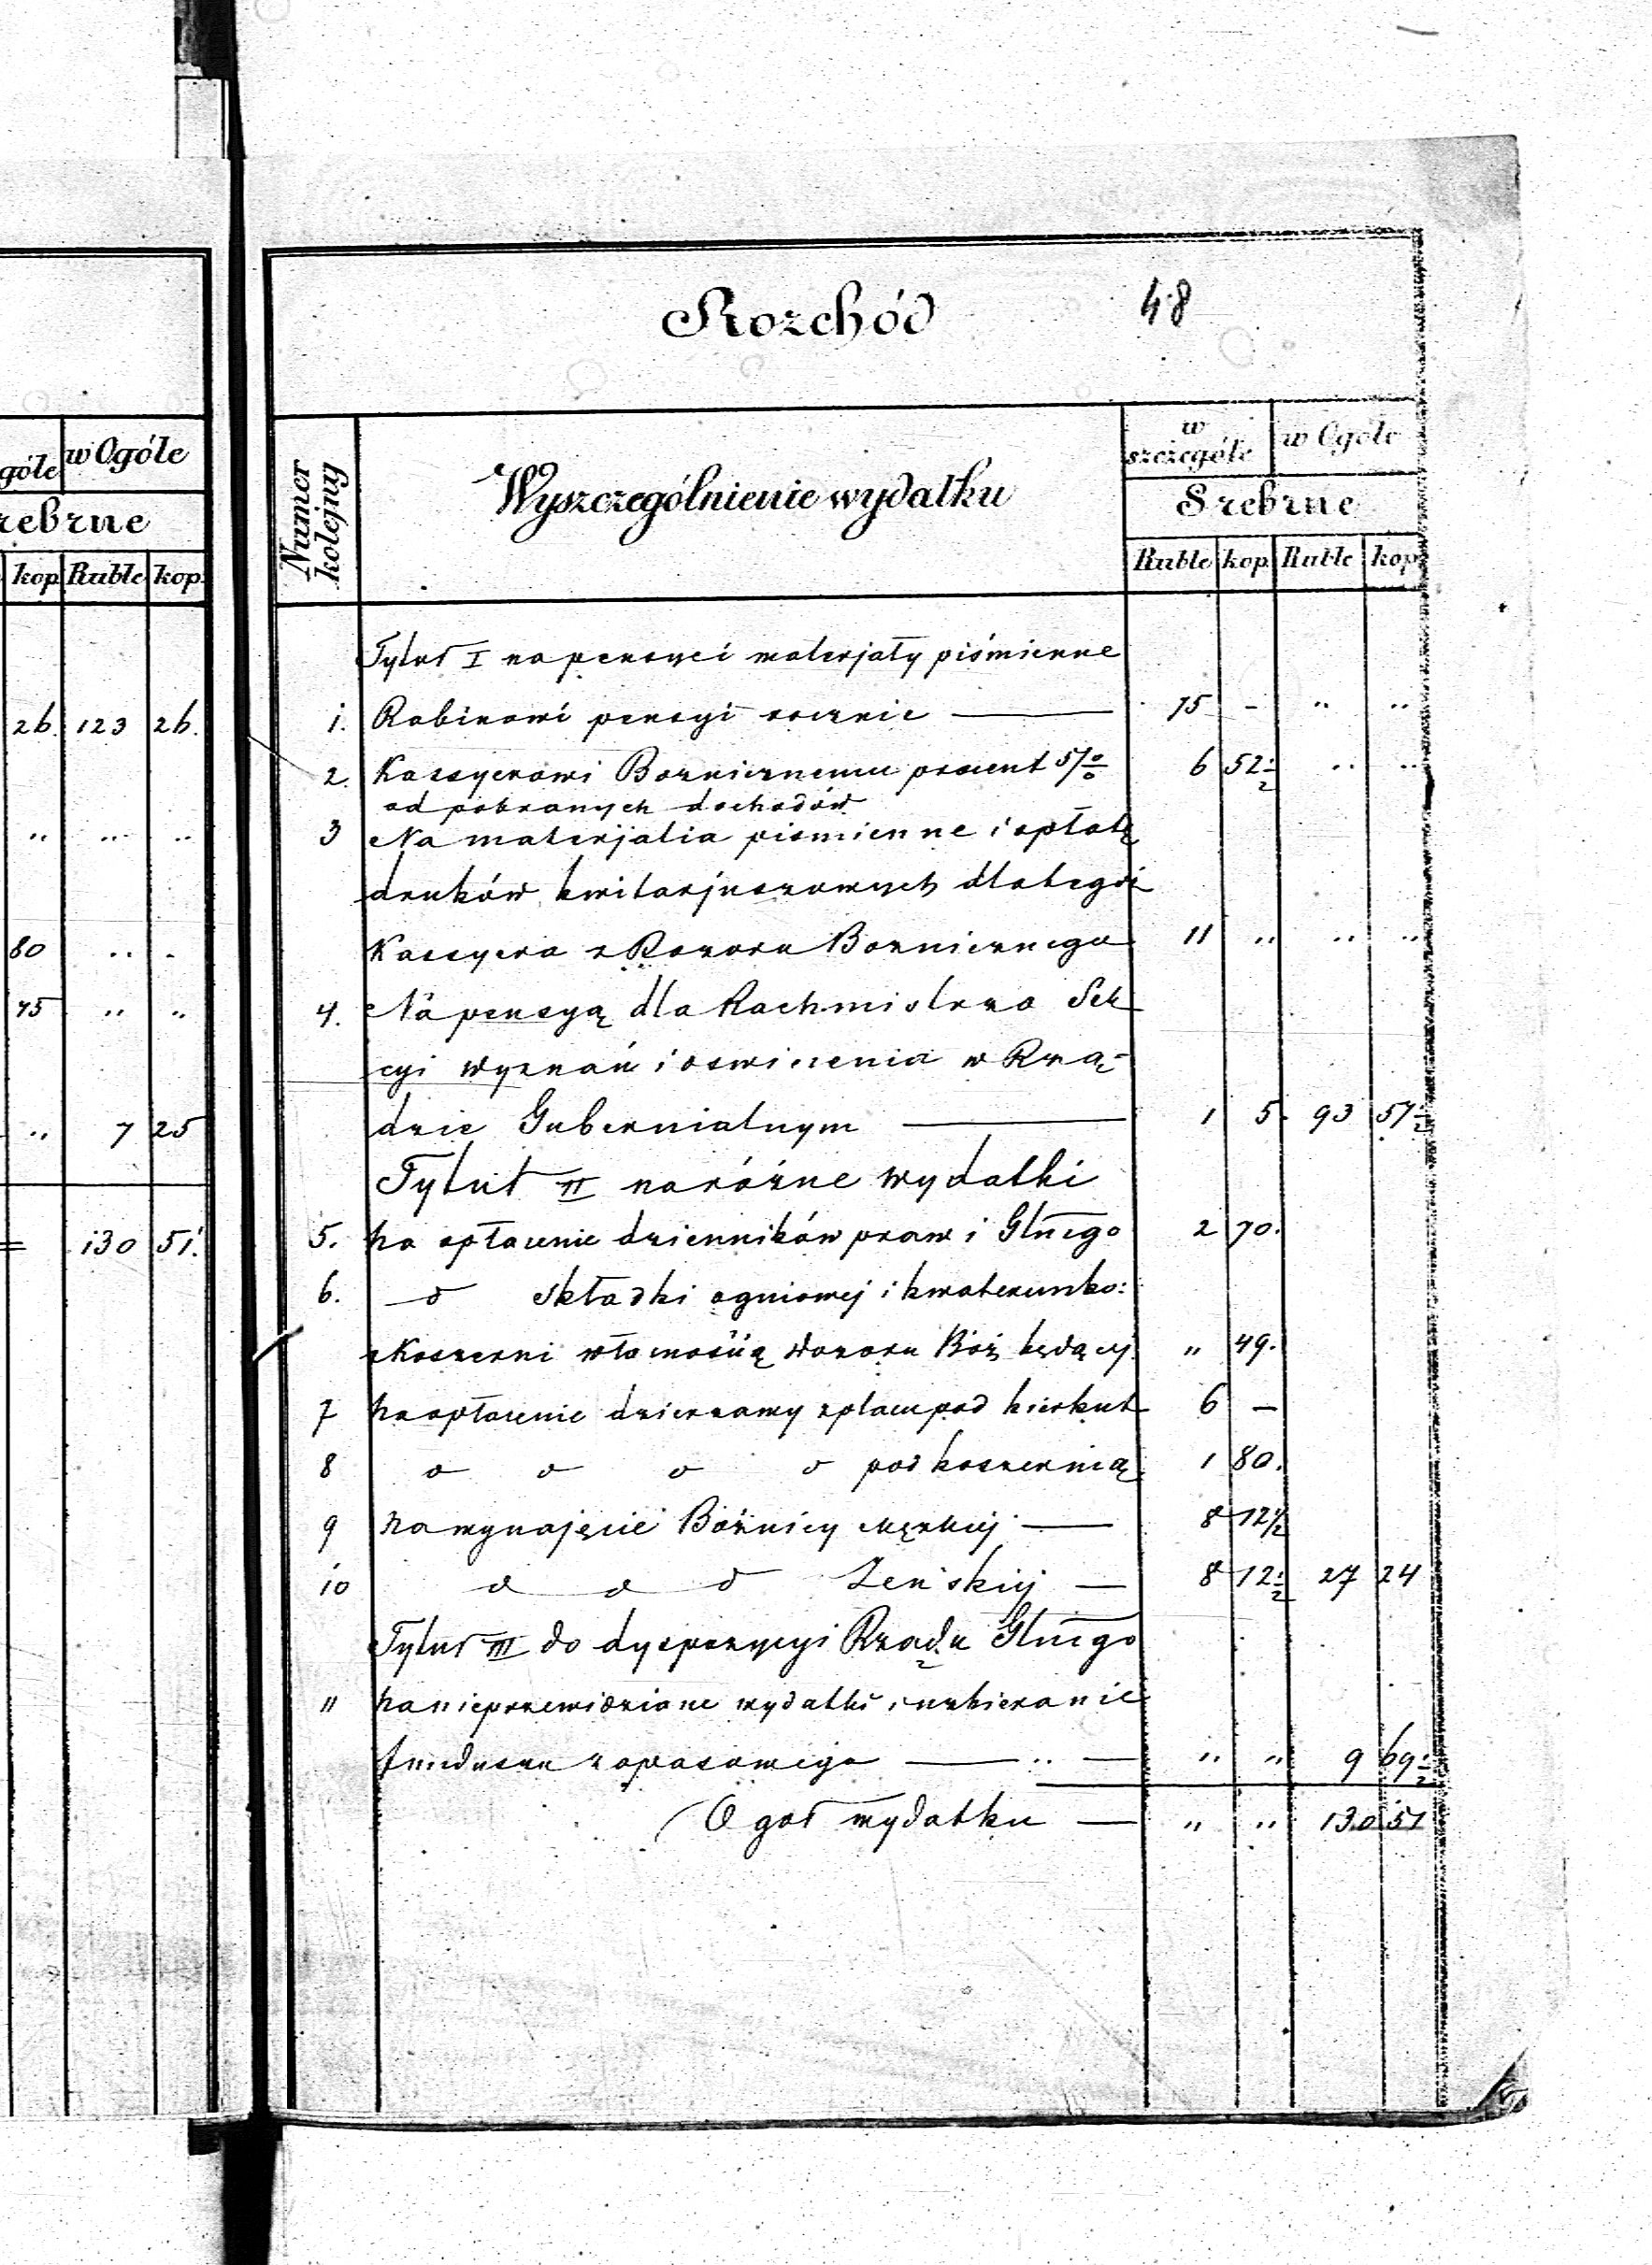 góle w Ogóle
rebrne
kop Ruble kop.
26. 123 26.
.. .. ..
80 .. ..
75 .. ..
.. 7 25
= 130 51.
Rozchód 48
Numer kolejny
Wyszczególnienie wydatku
w szczególe w Ogóle
Srebrne
Ruble kop. Ruble kop.
Tytuł I na pensye i materjały piśmienne
1. Rabinowi pensyi rocznie — 75 - .. ..
2. Kassyerowi Bożnicznemu procent 5% 6 52½ .. ..
od pobranych dochodów
3 Na materjalia piśmienne i opłatę
druków kwitarjuszowych dla tegoż
Kassyera z Dozoru Bożnicznego 11 .. .. ..
4. Na pensyą dla Rachmistrza Sek
cyi wyznań i oswiecenia w Rzą-
dzie Gubernialnym — 1 5. 93 57½
Tytuł II na różne wydatki
5. Na opłacenie dzienników praw i Glnego 2 70.
6. — d składki ogniowej i kwaterunko:
z Koszerni własnością Dozoru Boż będącej „ 49.
7 Na opłacenie dzierzawy z placu pod kierkut 6 —
8 d d d d pod koszernią 1 80.
9 Na wynajęcie Bóżnicy męzkiej — 8 12½
10 d d d Żeńskiej — 8 12½ 27 24
Tytuł III do dyspozycyi Rządu Glnego
11 Na nieprzewidziane wydatki i uzbieranie
funduszu zapasowego — .. — „ „ 9 69½
Ogół wydatku — „ „ 130 51